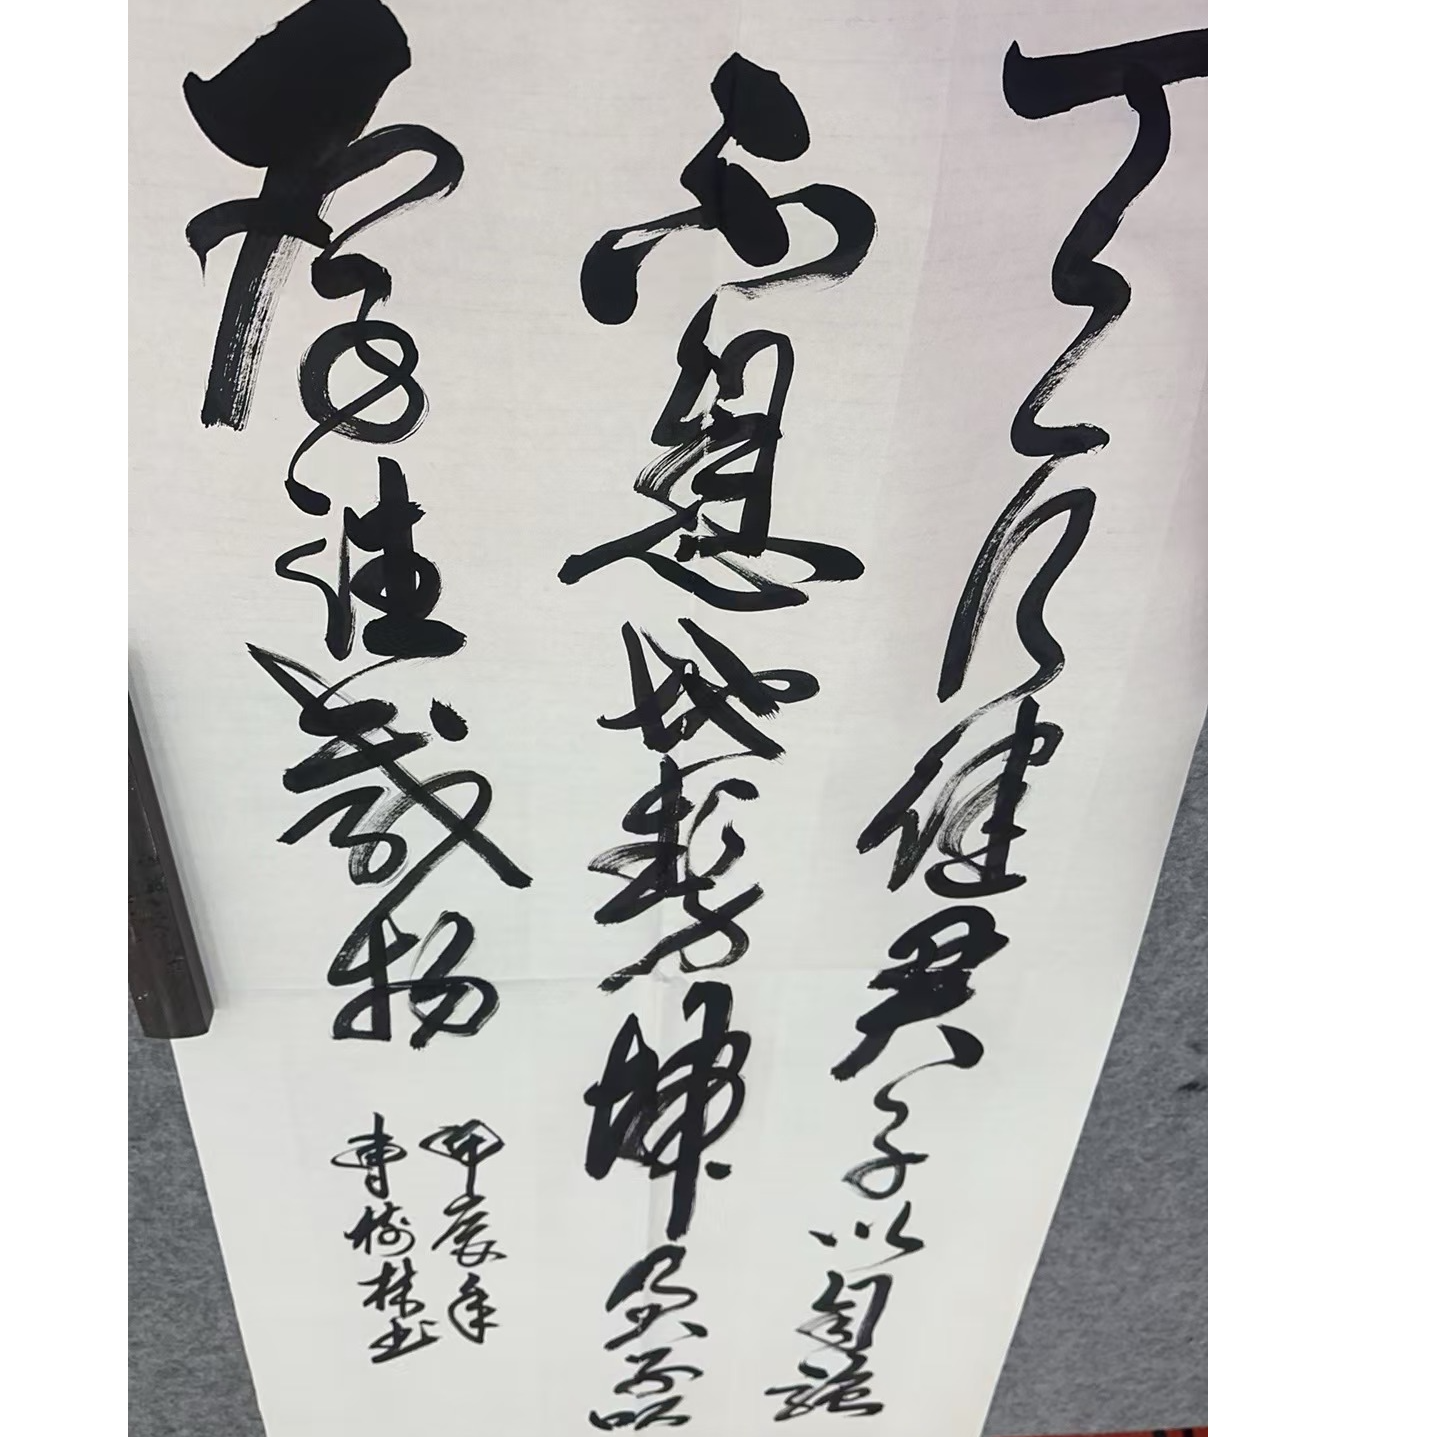 天行健君子以自强
不息地势坤君子以
厚德载物
甲辰年
树林书